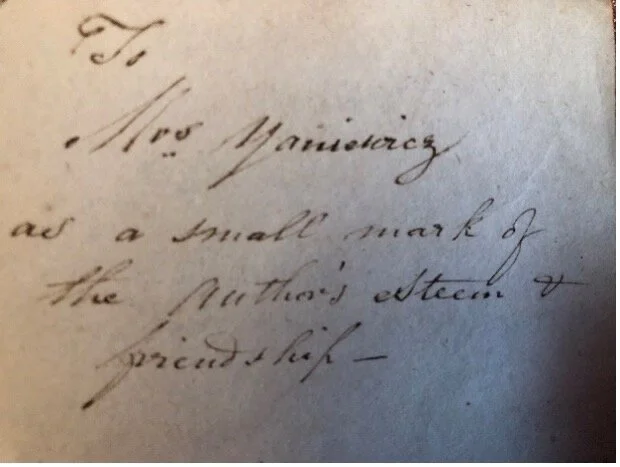 To
Mrs Yaniewicz
as a small mark of
the Author's esteem &
friendship —